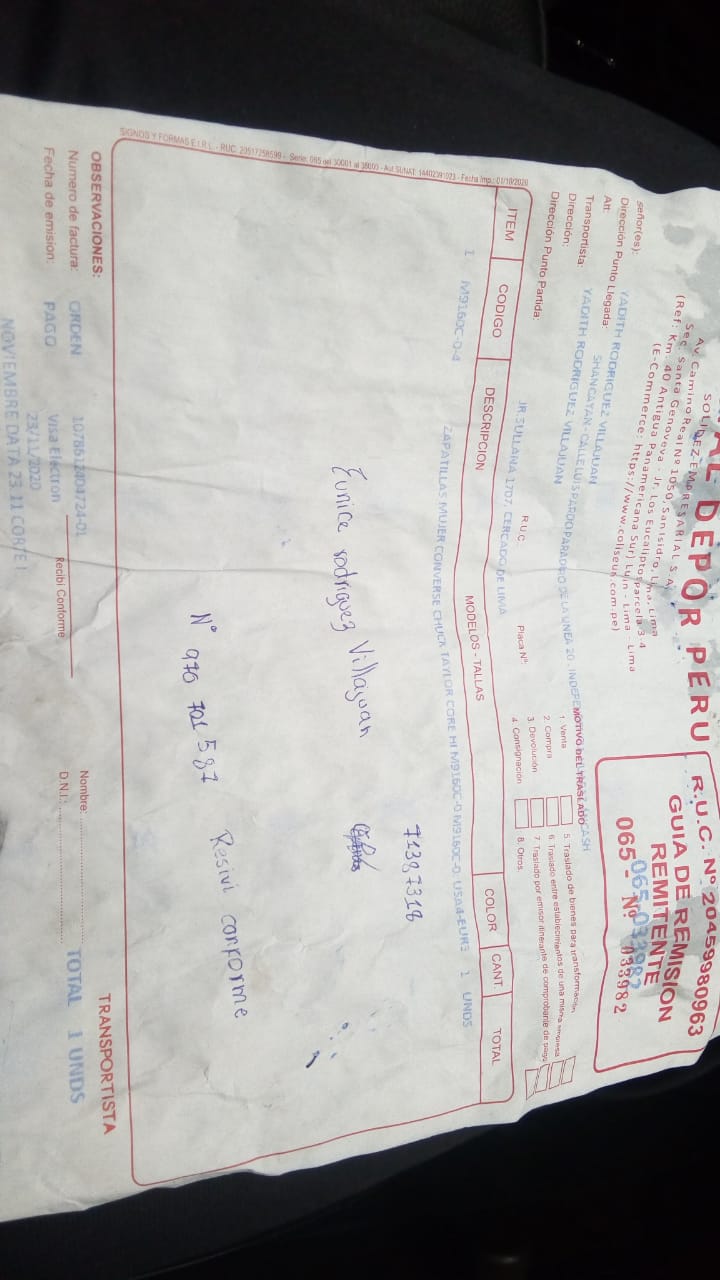 DEPOR PERU
SOLIDEZ EMPRESARIAL S.A.
Av. Camino Real Nº 1050, San Isidro, Lima
Sec. Santa Genoveva - Jr. Los Eucaliptos parcela 3-4
(Ref: Km. 40 Antigua Panamericana Sur) Lurin - Lima - Lima
(E-Commerce: https://www.coliseum.com.pe)
R.U.C. Nº 20459980963
GUIA DE REMISION
REMITENTE
065-033982
065 - Nº 033982
señor(es): YADITH RODRIGUEZ VILLAJUAN
Dirección Punto Llegada: SHANCAYAN-CALLE LUIS PARDO PARADERO DE LA LINEA 20 - INDEPE
Att: YADITH RODRIGUEZ VILLAJUAN
Transportista:
Dirección: R.U.C. Placa Nº:
Dirección Punto Partida: JR.SULLANA 1707, CERCADO DE LIMA
MOTIVO DEL TRASLADO
1. Venta
2. Compra
3. Devolución
4. Consignación
5. Traslado de bienes para transformación
6. Traslado entre establecimientos de una misma empresa
7. Traslado por emisor itinerante de comprobante de pago
8. Otros.
ITEM CODIGO DESCRIPCION MODELOS - TALLAS COLOR CANT. TOTAL
1 M9160C-0-4 ZAPATILLAS MUJER CONVERSE CHUCK TAYLOR CORE HI M9160C-0 M9160C-0; USA4-EUR3 1 UNDS
71387318
Eunice rodriguez Villajuan
Nº 970 701 587 Resivi conforme
SIGNOS Y FORMAS E.I.R.L. - RUC. 20517258599 - Serie: 065 del 30001 al 38000 - Aut SUNAT: 14402391023 - Fecha Imp.: 01/10/2020
OBSERVACIONES: TRANSPORTISTA
Numero de factura: ORDEN 1078612404724-01 Nombre: TOTAL 1 UNDS
Fecha de emision: PAGO Visa Electron Recibi Conforme D.N.I.:
23/11/2020
NOVIEMBRE DATA 23.11 CORTE 1